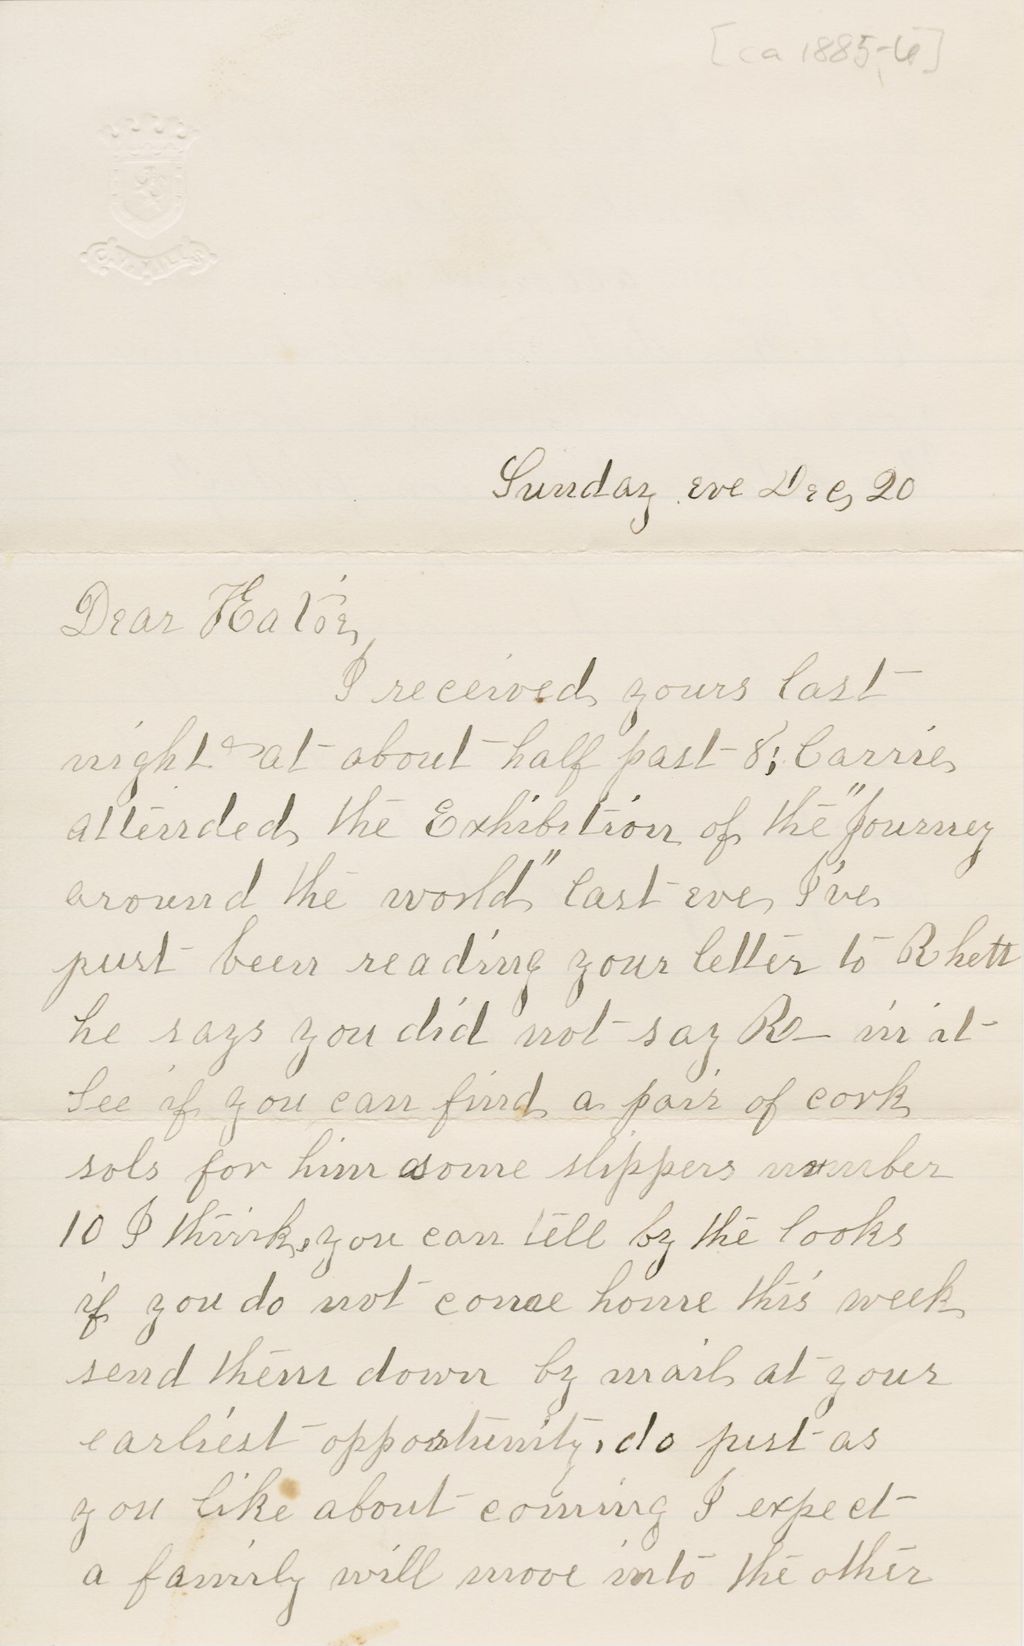 [ca 1885-6]
Sunday eve Dec, 20
Dear Katie,
I received yours last
night at about half past 8; Carrie
attended the Exhibition of the "Journey
around the world" last eve, I've
just been reading your letter to Rhett
he says you did not say R— in it
See if you can find a pair of cork
sols for him some slippers number
10 I think, you can tell by the looks
if you do not come home this week
send them down by mail at your
earliest opportunity, do just as
you like about coming I expect
a family will move into the other